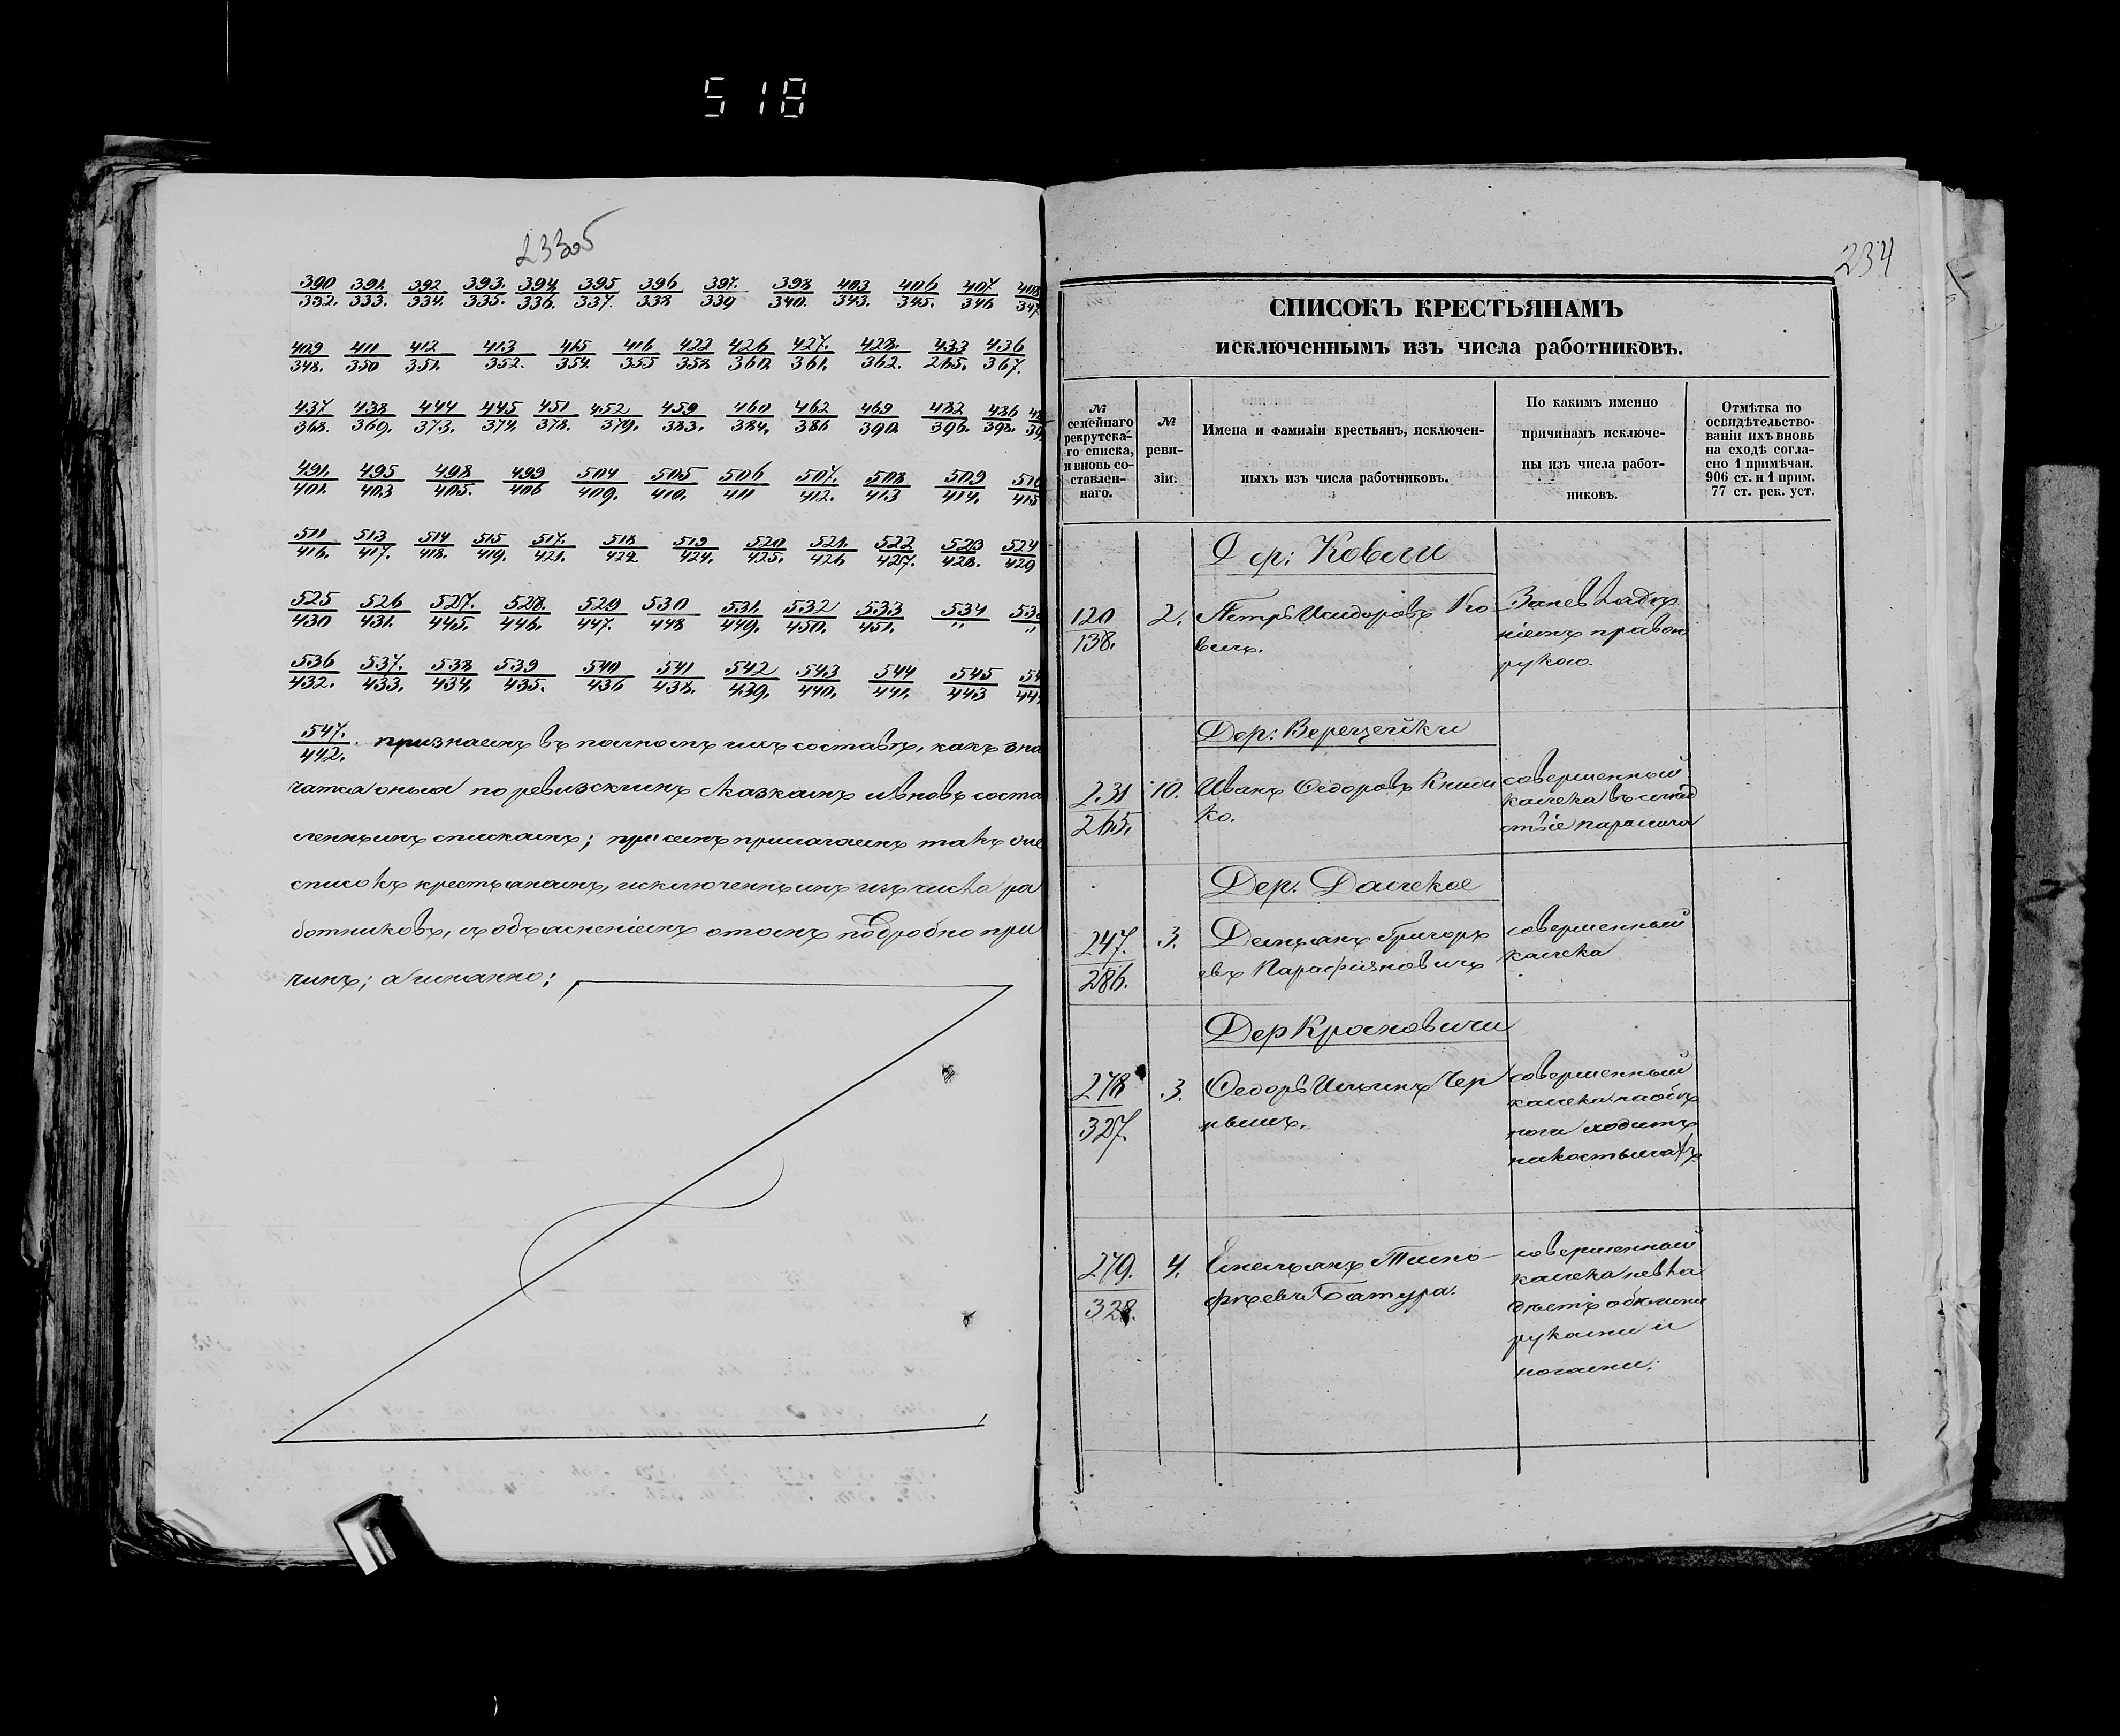 518
233об
390/332. 391./333. 392/334. 393./335. 394/336. 395/337. 396/338 397./339 398/340. 403/343. 406/345. 407/346 408/347
409/348. 411/350 412/351. 413/352. 415/354 416/355 422/358 426/360. 427./361. 428./362. 433/265. 436/367.
437/368. 438/369. 444/373. 445/374. 451/378. 452/379. 459/383. 460/384. 462/386 469/390. 482/396. 486/398.
491./401. 495/403 498/405. 499/406 504/409. 505/410. 506/411 507./412. 508/413 509/414. 510/415
511/416. 513/417. 514/418. 515/419. 517./421. 518/422 519/424. 520/425. 521./426 522/427. 523/428. 524/429
525/430 526/431. 527./445. 528./446. 529/447. 530/448 531./449. 532/450. 533/451. 534/„
536/432. 537./433. 538/434. 539/435. 540/436 541/438. 542/439. 543/440. 544/441. 545/443
547./442. признаемъ въ полномъ ихъ составѣ, какъ зна
чатся оныя по ревизскимъ сказкамъ и вновь соста
леннымъ спискамъ; при семъ прилагаемъ такъ
списокъ крестьянамъ, исключеннымъ изъ числа ра
ботниковъ, съ объясненіемъ о томъ подробно при
чинъ; а именно:
234
СПИСОКЪ КРЕСТЬЯНАМЪ
исключеннымъ изъ числа работниковъ.
№ семейнаго рекрутска-го списка, и вновь со-ставлен-наго.
№ реви-зіи.
Имена и фамиліи крестьянъ, исключен-
ныхъ изъ числа работниковъ.
По какимъ именно
причинамъ исключе-
ны изъ числа работ-
никовъ.
Отмѣтка по
освидѣтельство-
ваніи ихъ вновь
на сходѣ согла-
сно 1 примѣчан.
906 ст. и 1 прим.
77 ст. рек. уст.
Дер: Ковали
120/138. 2. Петръ Исидоровъ Ко
вичъ.
За невладѣ
ніемъ правою
рукою.
Дер: Верещейки
231/265. 10. Иванъ Ѳедоровъ
ко.
совершенный
калека въ слѣд
ствіе паралича
Дер. Далекое
247./286. 3. Демьянъ Григорь
евъ Парафіяновичъ
совершенный
калека
Дер Кросновичи
278/327. 3. Ѳедоръ Ильинъ Чер
нышъ.
совершенный
калека на обѣ
ноги ходитъ
на костыляхъ
279./328. 4. Емельянъ Тимо
фѣевъ Батура.
совершенный
калека невла
дѣетъ обѣими
руками и
ногами.